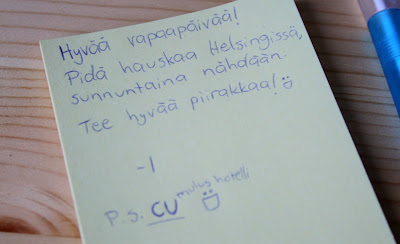 Hyvää vapaapäivää!
Pidä hauskaa Helsingissä,
sunnuntaina nähdään.
Tee hyvää piirakkaa!
-I
P.S. CU mulus hotelli